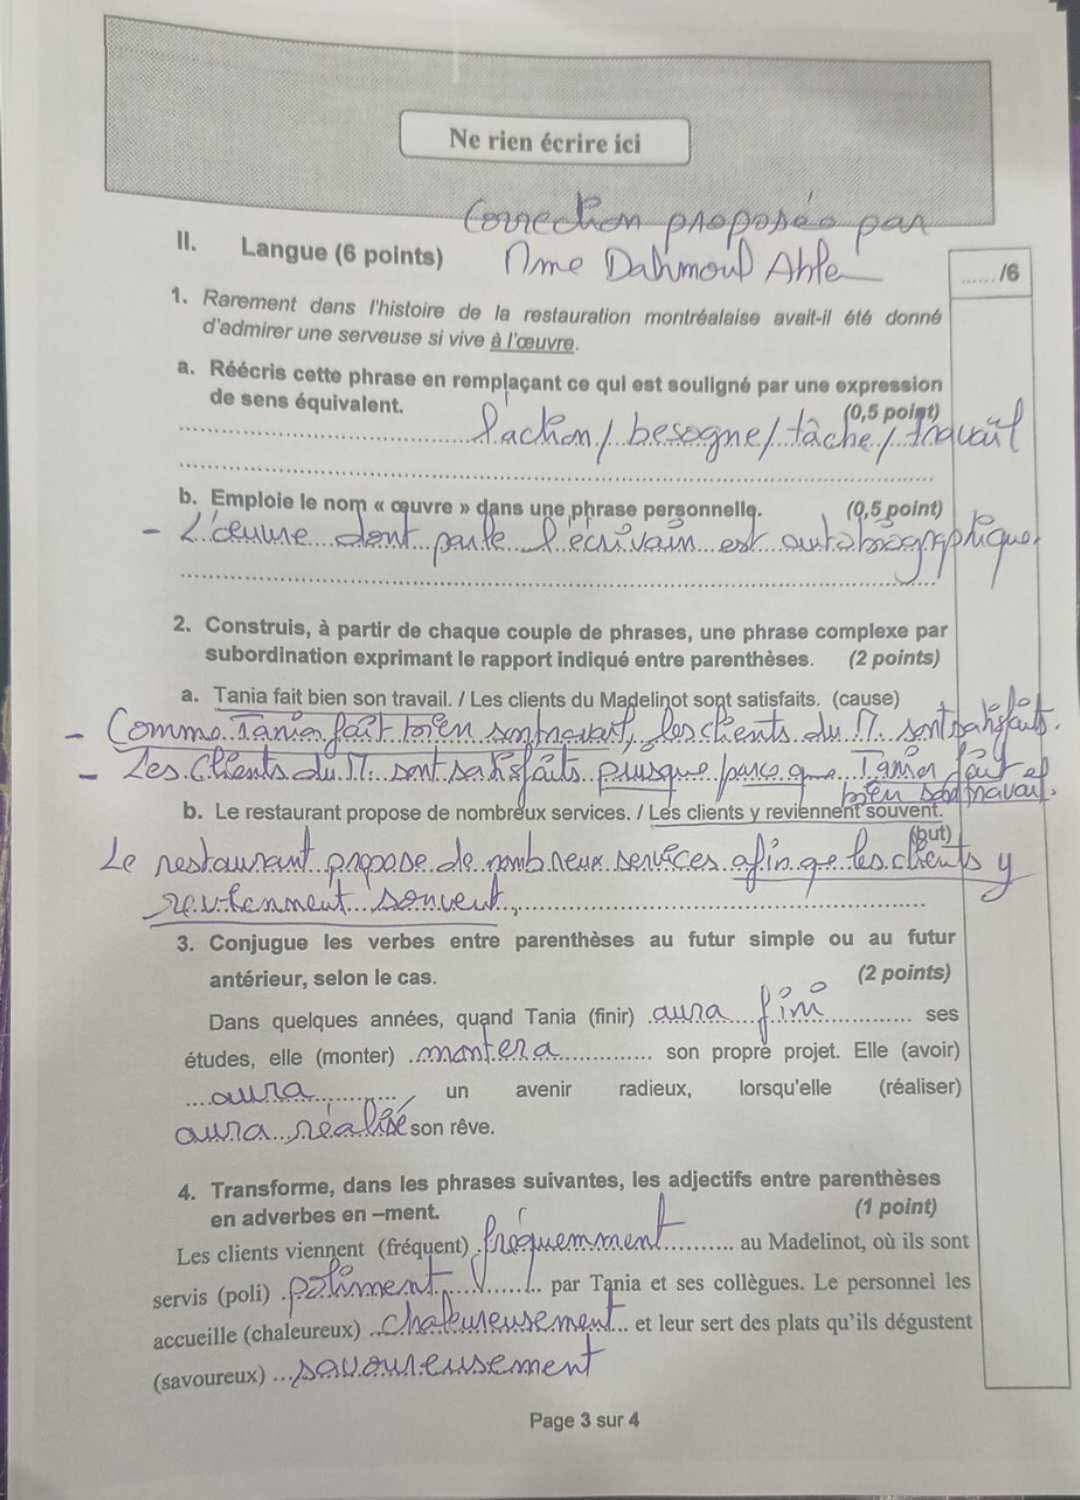 Ne rien écrire ici
Correction proposée par
Mme Dahmoul Ahle
II. Langue (6 points)
....../6
1. Rarement dans l'histoire de la restauration montréalaise avait-il été donné
d'admirer une serveuse si vive à l'œuvre.
a. Réécris cette phrase en remplaçant ce qui est souligné par une expression
de sens équivalent.
(0,5 point)
l'action / besogne / tâche / travail
b. Emploie le nom « œuvre » dans une phrase personnelle. (0,5 point)
- L'œuvre dont parle l'écrivain est autobiographique.
2. Construis, à partir de chaque couple de phrases, une phrase complexe par
subordination exprimant le rapport indiqué entre parenthèses. (2 points)
a. Tania fait bien son travail. / Les clients du Madelinot sont satisfaits. (cause)
- Comme Tania fait bien son travail, les clients du M. sont satisfaits.
- Les clients du M. sont satisfaits puisque parce que Tania fait
bien son travail.
b. Le restaurant propose de nombreux services. / Les clients y reviennent souvent.
(but)
Le restaurant propose de nombreux services afin qe les clients y
reviennent souvent.
3. Conjugue les verbes entre parenthèses au futur simple ou au futur
antérieur, selon le cas. (2 points)
Dans quelques années, quand Tania (finir) aura fini ses
études, elle (monter) montera son propre projet. Elle (avoir)
aura un avenir radieux, lorsqu'elle (réaliser)
aura réalisé son rêve.
4. Transforme, dans les phrases suivantes, les adjectifs entre parenthèses
en adverbes en –ment. (1 point)
Les clients viennent (fréquent) fréquemment au Madelinot, où ils sont
servis (poli) poliment par Tania et ses collègues. Le personnel les
accueille (chaleureux) chaleureusement et leur sert des plats qu'ils dégustent
(savoureux) savoureusement
Page 3 sur 4